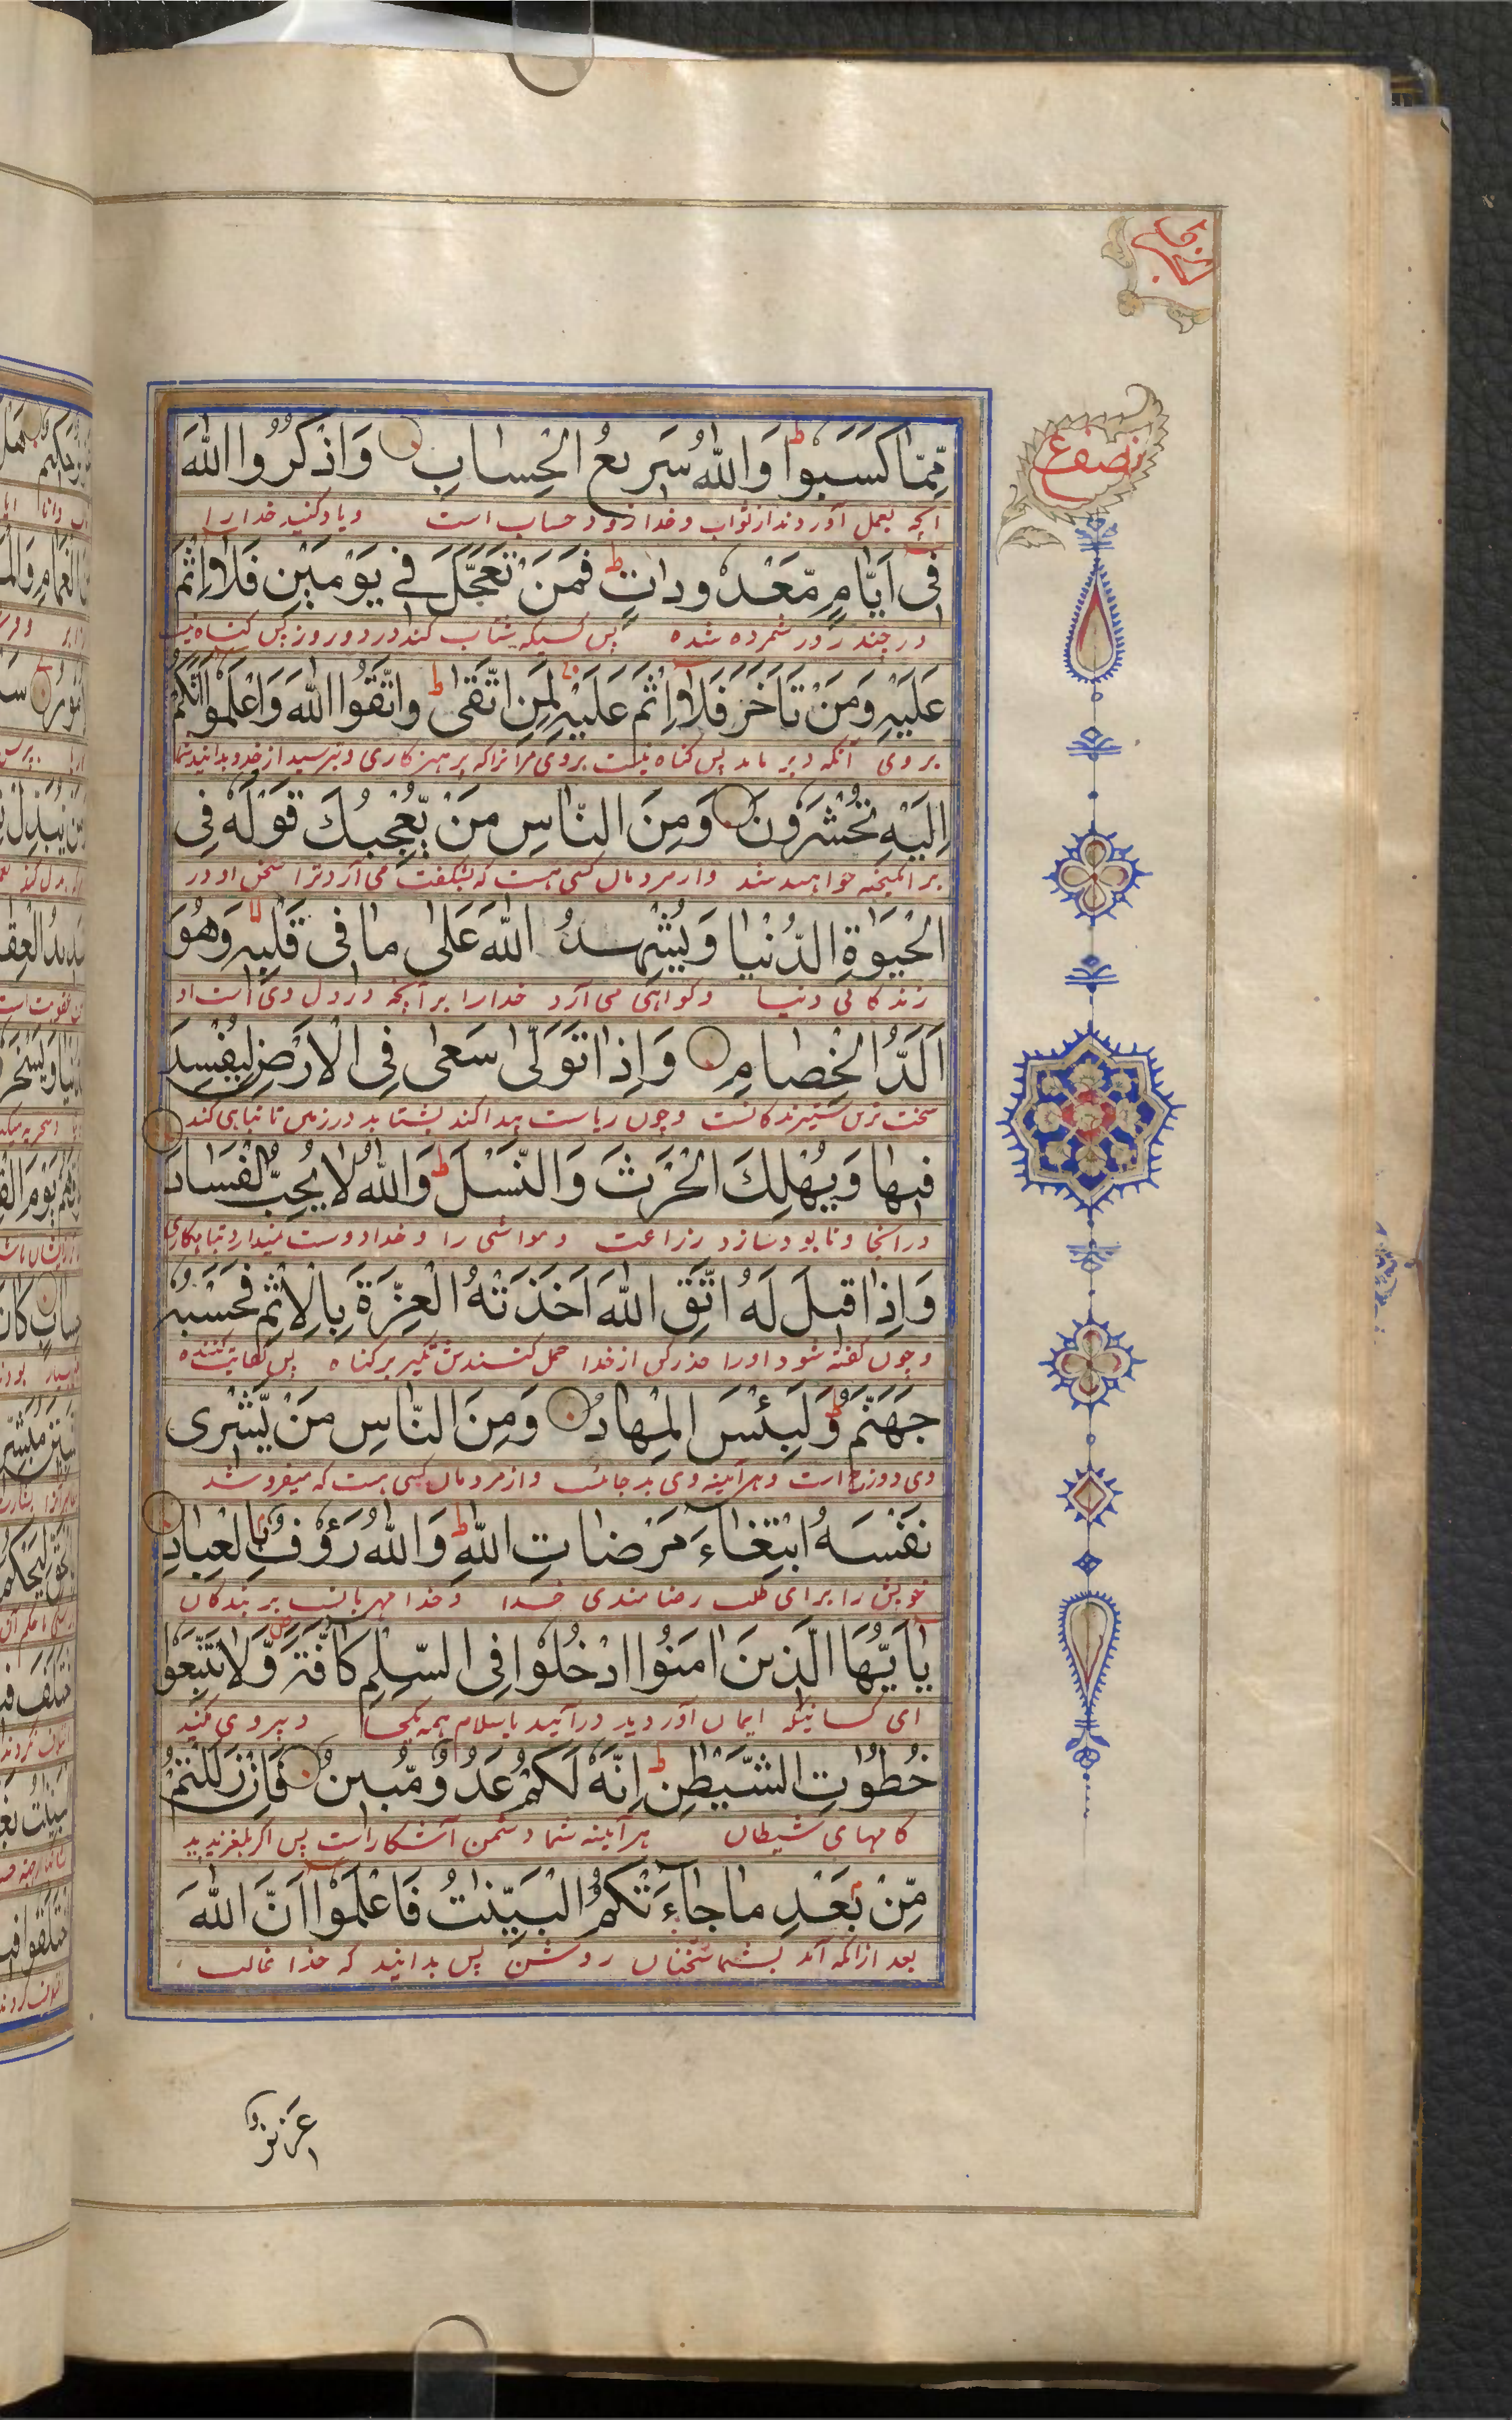 نصف ع
مِّمَّا كَسَبُوا ط وَاللّٰهُ سَرِيعُ الْحِسَابِ وَاذْكُرُوا اللّٰهَ
انچه بعمل آوردند از ثواب و خدا زود حساب است ویاد کنید خدا را
فِي أَيَّامٍ مَّعْدُودَاتٍ ط فَمَنْ تَعَجَّلَ فِي يَوْمَيْنِ فَلَا إِثْمَ
در چند روز شمرده شده پس کسیکه شتاب کند در دو روز پس گناه نیست
عَلَيْهِ وَمَنْ تَأَخَّرَ فَلَا إِثْمَ عَلَيْهِ لِمَنِ اتَّقَىٰ ط وَاتَّقُوا اللّٰهَ وَاعْلَمُوا أَنَّكُمْ
بر وی آنکه دیر ماند پس گناه نیست بروی مر انرا که پرهیزکاری و بترسید از خدا و بدانید شما
إِلَيْهِ تُحْشَرُونَ وَمِنَ النَّاسِ مَنْ يُّعْجِبُكَ قَوْلُهٗ فِي
بر انگیخته خواهید شد و از مردمان کسی هست که بشگفت می آرد ترا سخن او در
الْحَيٰوةِ الدُّنْيَا وَيُشْهِدُ اللّٰهَ عَلَىٰ مَا فِي قَلْبِهٖ لا وَهُوَ
زندگانی دنیا و گواهی می آرد خدا را بر آنچه در دل وی است و او
أَلَدُّ الْخِصَامِ وَإِذَا تَوَلَّىٰ سَعَىٰ فِي الْأَرْضِ لِيُفْسِدَ
سخت ترین ستیزندگانست و چون ریاست پیدا کند بشتابد در زمین تا تباهی کند
فِيهَا وَيُهْلِكَ الْحَرْثَ وَالنَّسْلَ ط وَاللّٰهُ لَا يُحِبُّ الْفَسَادَ
درانجا و نابود سازد زراعت و مواشی را و خدا دوست ندارد تباهکاری
وَإِذَا قِيلَ لَهُ اتَّقِ اللّٰهَ أَخَذَتْهُ الْعِزَّةُ بِالْإِثْمِ فَحَسْبُهٗ
و چون گفته شود او را حذر کن از خدا حمل کندش تکبر بر گناه پس کفایت کننده
جَهَنَّمُ ط وَلَبِئْسَ الْمِهَادُ وَمِنَ النَّاسِ مَنْ يَّشْرِي
وی دوزخ است و هر آئینه وی بد جائیست و از مردمان کسی هست که میفروشد
نَفْسَهُ ابْتِغَاءَ مَرْضَاتِ اللّٰهِ ط وَاللّٰهُ رَؤُوفٌ بِالْعِبَادِ
خویش را برای طلب رضامندی خدا و خدا مهربانست بر بندگان
يَا أَيُّهَا الَّذِينَ اٰمَنُوا ادْخُلُوا فِي السِّلْمِ كَافَّةً وَّلَا تَتَّبِعُوا
ای کسانیکه ایمان آوردید درآئید باسلام همه یکجا و پیروی مکنید
خُطُوٰتِ الشَّيْطٰنِ ط إِنَّهٗ لَكُمْ عَدُوٌّ مُّبِينٌ فَإِنْ زَلَلْتُمْ
گامهای شیطان هر آئینه شما دشمن آشکارا است پس اگر بلغزیدید
مِّنْ بَعْدِ مَا جَاءَتْكُمُ الْبَيِّنٰتُ فَاعْلَمُوا أَنَّ اللّٰهَ
بعد ازانکه آمد بشما سخنان روشن پس بدانید که خدا غالب
عَزِيزٌ